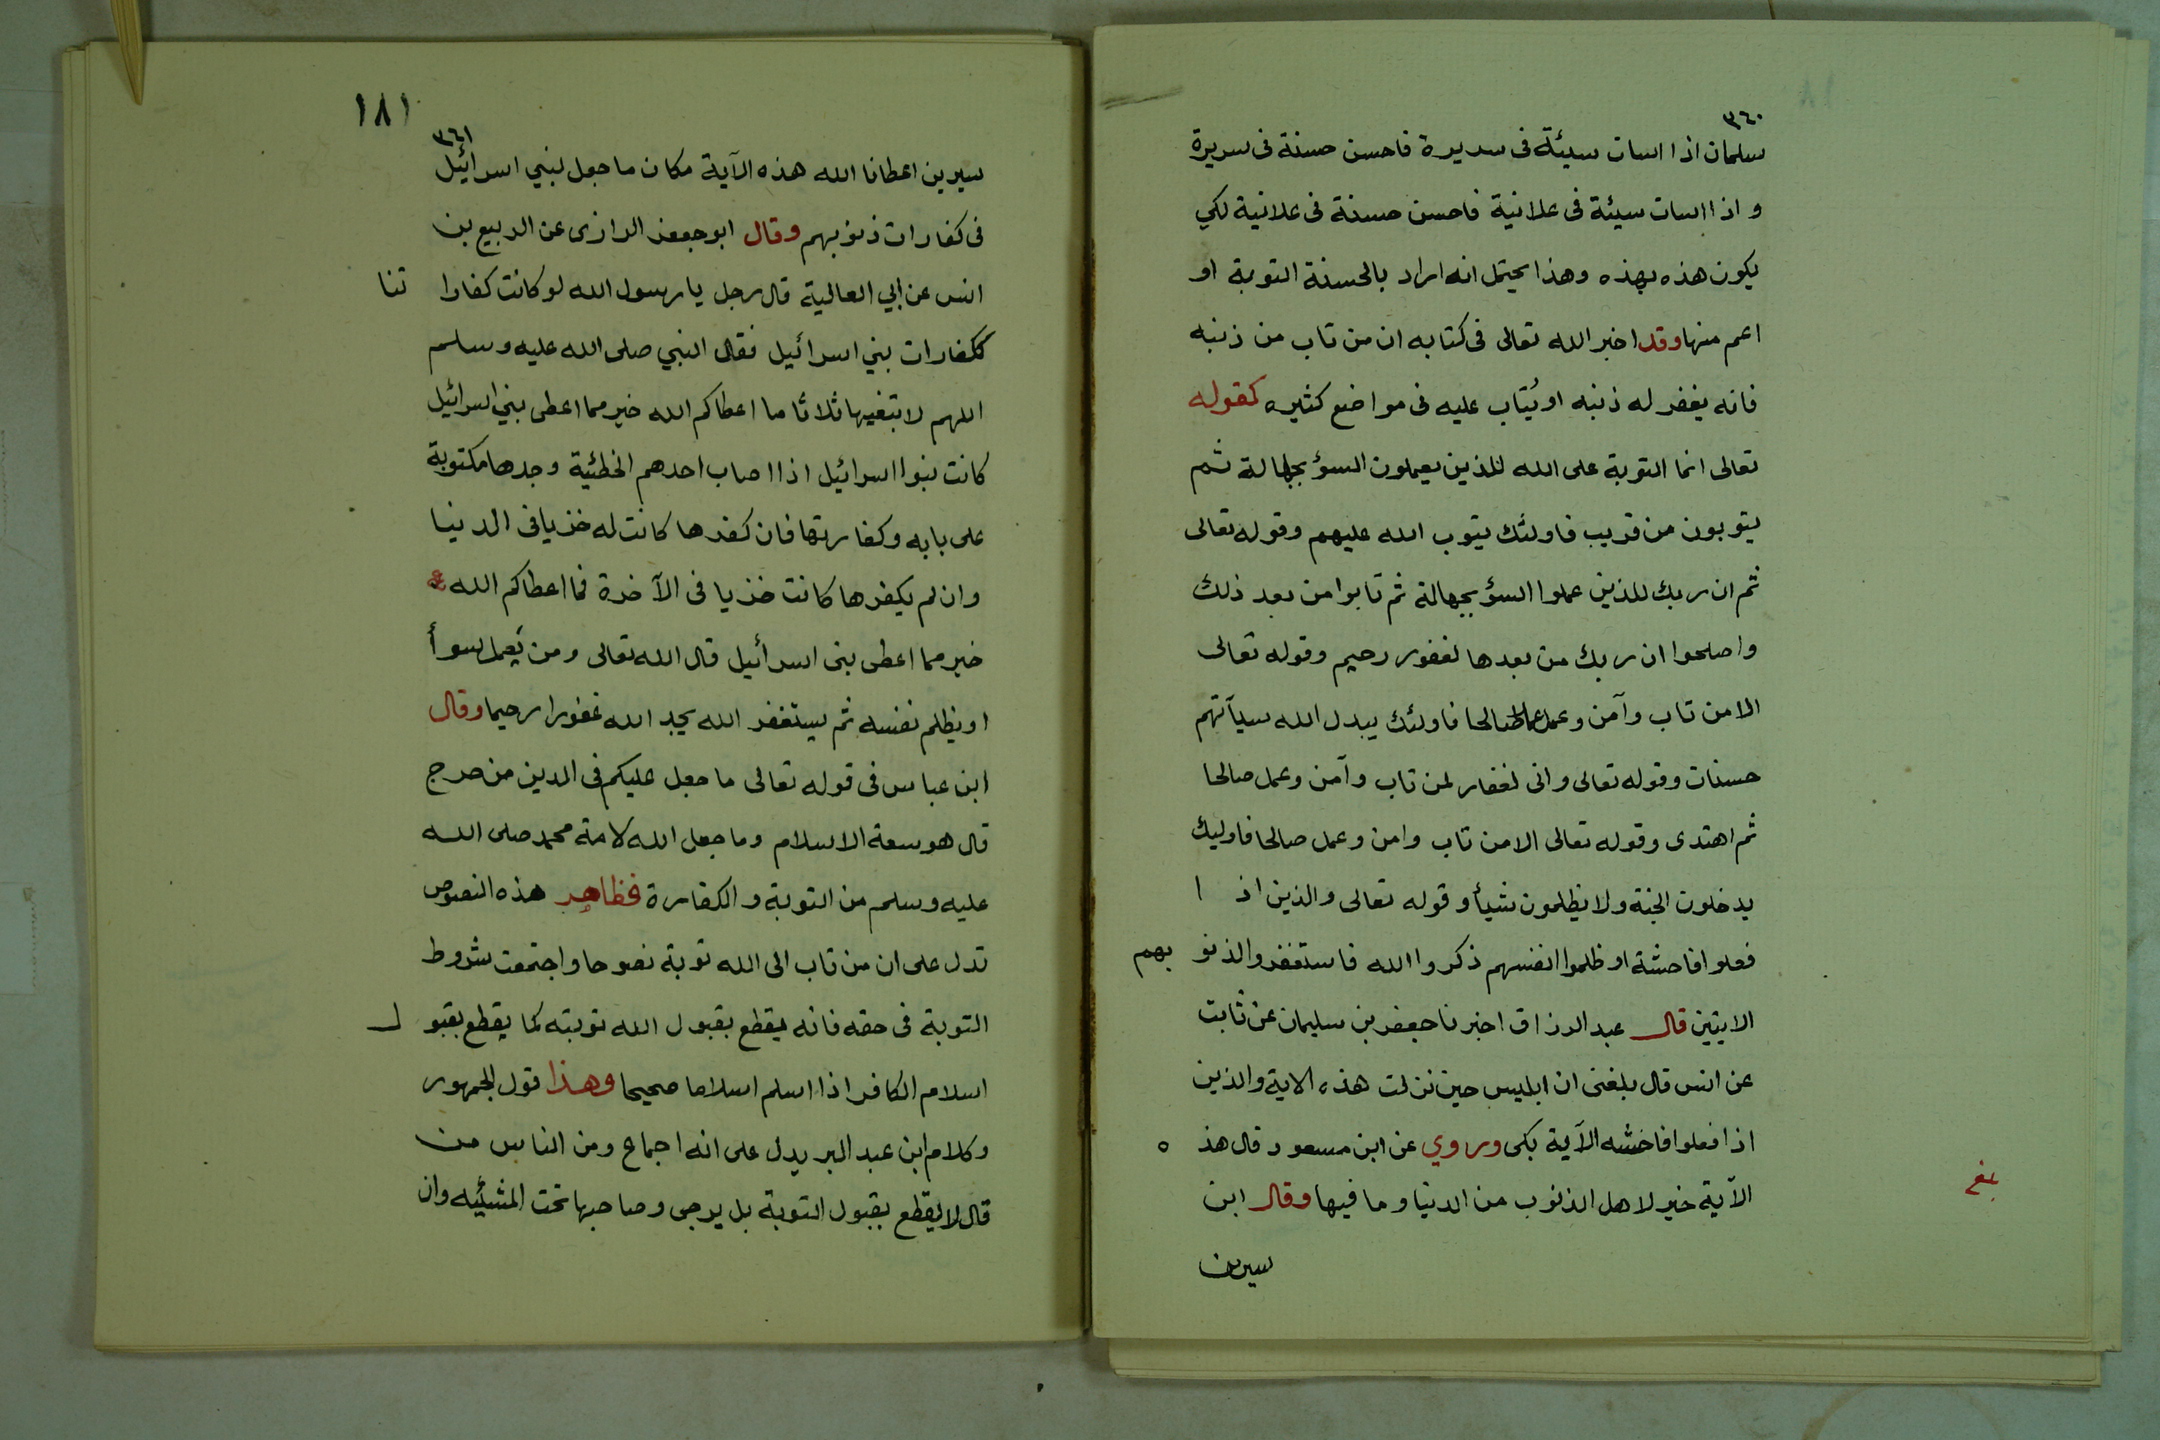 ٣٦٠
سلمان اذا اسات سيئة فى سريرة فاحسن حسنة فى سريرة
و اذا اسات سيئة فى علانية فاحسن حسنة فى علانية لكي
يكون هذه بهذه وهذا يحتمل انه اراد بالحسنة التوبة او
اعم منها وقد اخبر الله تعالى فى كتابه ان من تاب من ذنبه
فانه يغفر له ذنبه او يُتاب عليه فى مواضع كثيره كقوله
تعالى انما التوبة على الله للذين يعملون السؤ بجهالة ثم
يتوبون من قريب فاولئك يتوب الله عليهم وقوله تعالى
ثم ان ربك للذين عملوا السؤ بجهالة ثم تابوا من بعد ذلك
واصلحوا ان ربك من بعدها لغفور رحيم وقوله تعالى
الا من تاب وآمن وعمل عملا صالحا فاولئك يبدل الله سيآتهم
حسنات وقوله تعالى وانى لغفار لمن تاب وآمن وعمل صالحا
ثم اهتدى وقوله تعالى الا من تاب وامن وعمل صالحا فاوليك
يدخلون الجنة ولا يظلمون شيأ وقوله تعالى والذين اذا
فعلوا فاحشة او ظلموا انفسهم ذكروا الله فاستغفروا لذنوبهم
الايتين قال عبد الرزاق اخبرنا جعفر بن سليمان عن ثابت
عن انس قال بلغنى ان ابليس حين نزلت هذه الاية والذين
اذا فعلوا فاخشه الآية بكى وروي عن ابن مسعود قال هذه
الآية خير لاهل الذنوب من الدنيا وما فيها وقال ابن
سيرين
بلغ
١٨١
٣٦١
سيرين اعطانا الله هذه الآية مكان ما جعل لبني اسرائيل
فى كفارات ذنوبهم وقال ابو جعفر الرازى عن الربيع بن
انس عن ابي العالية قال رجل يا رسول الله لو كانت كفاراتنا
ككفارات بني اسرائيل فقال النبي صلى الله عليه وسلم
اللهم لا نبتغيها ثلاثا ما اعطاكم الله خير مما اعطى بني اسرائيل
كانت بنوا اسرائيل اذا اصاب احدهم الخطئية وجدها مكتوبة
على بابه وكفارتها فان كفرها كانت له خزيا فى الدنيا
وان لم يكفرها كانت خزيا فى الآخرة فما اعطاكم الله
خير مما اعطى بنى اسرائيل قال الله تعالى ومن يَعمل سوأ
او يظلم نفسه ثم يستغفر الله يجد الله غفورا رحيما وقال
ابن عباس فى قوله تعالى ما جعل عليكم فى الدين من حرج
قال هو سعة الاسلام وما جعل الله لامة محمد صلى الله
عليه وسلم من التوبة والكفارة فظاهر هذه النصوص
تدل على ان من تاب الى الله توبة نصوحا واجتمعت شروط
التوبة فى حقه فانه يقطع بقبول الله توبته كما يقطع بقبول
اسلام الكافر اذا اسلم اسلاما صحيحا وهذا قول الجمهور
وكلام ابن عبد البر يدل على انه اجماع ومن الناس من
قال لا يقطع بقبول التوبة بل يرجى وصاحبها تحت المشيئه وان